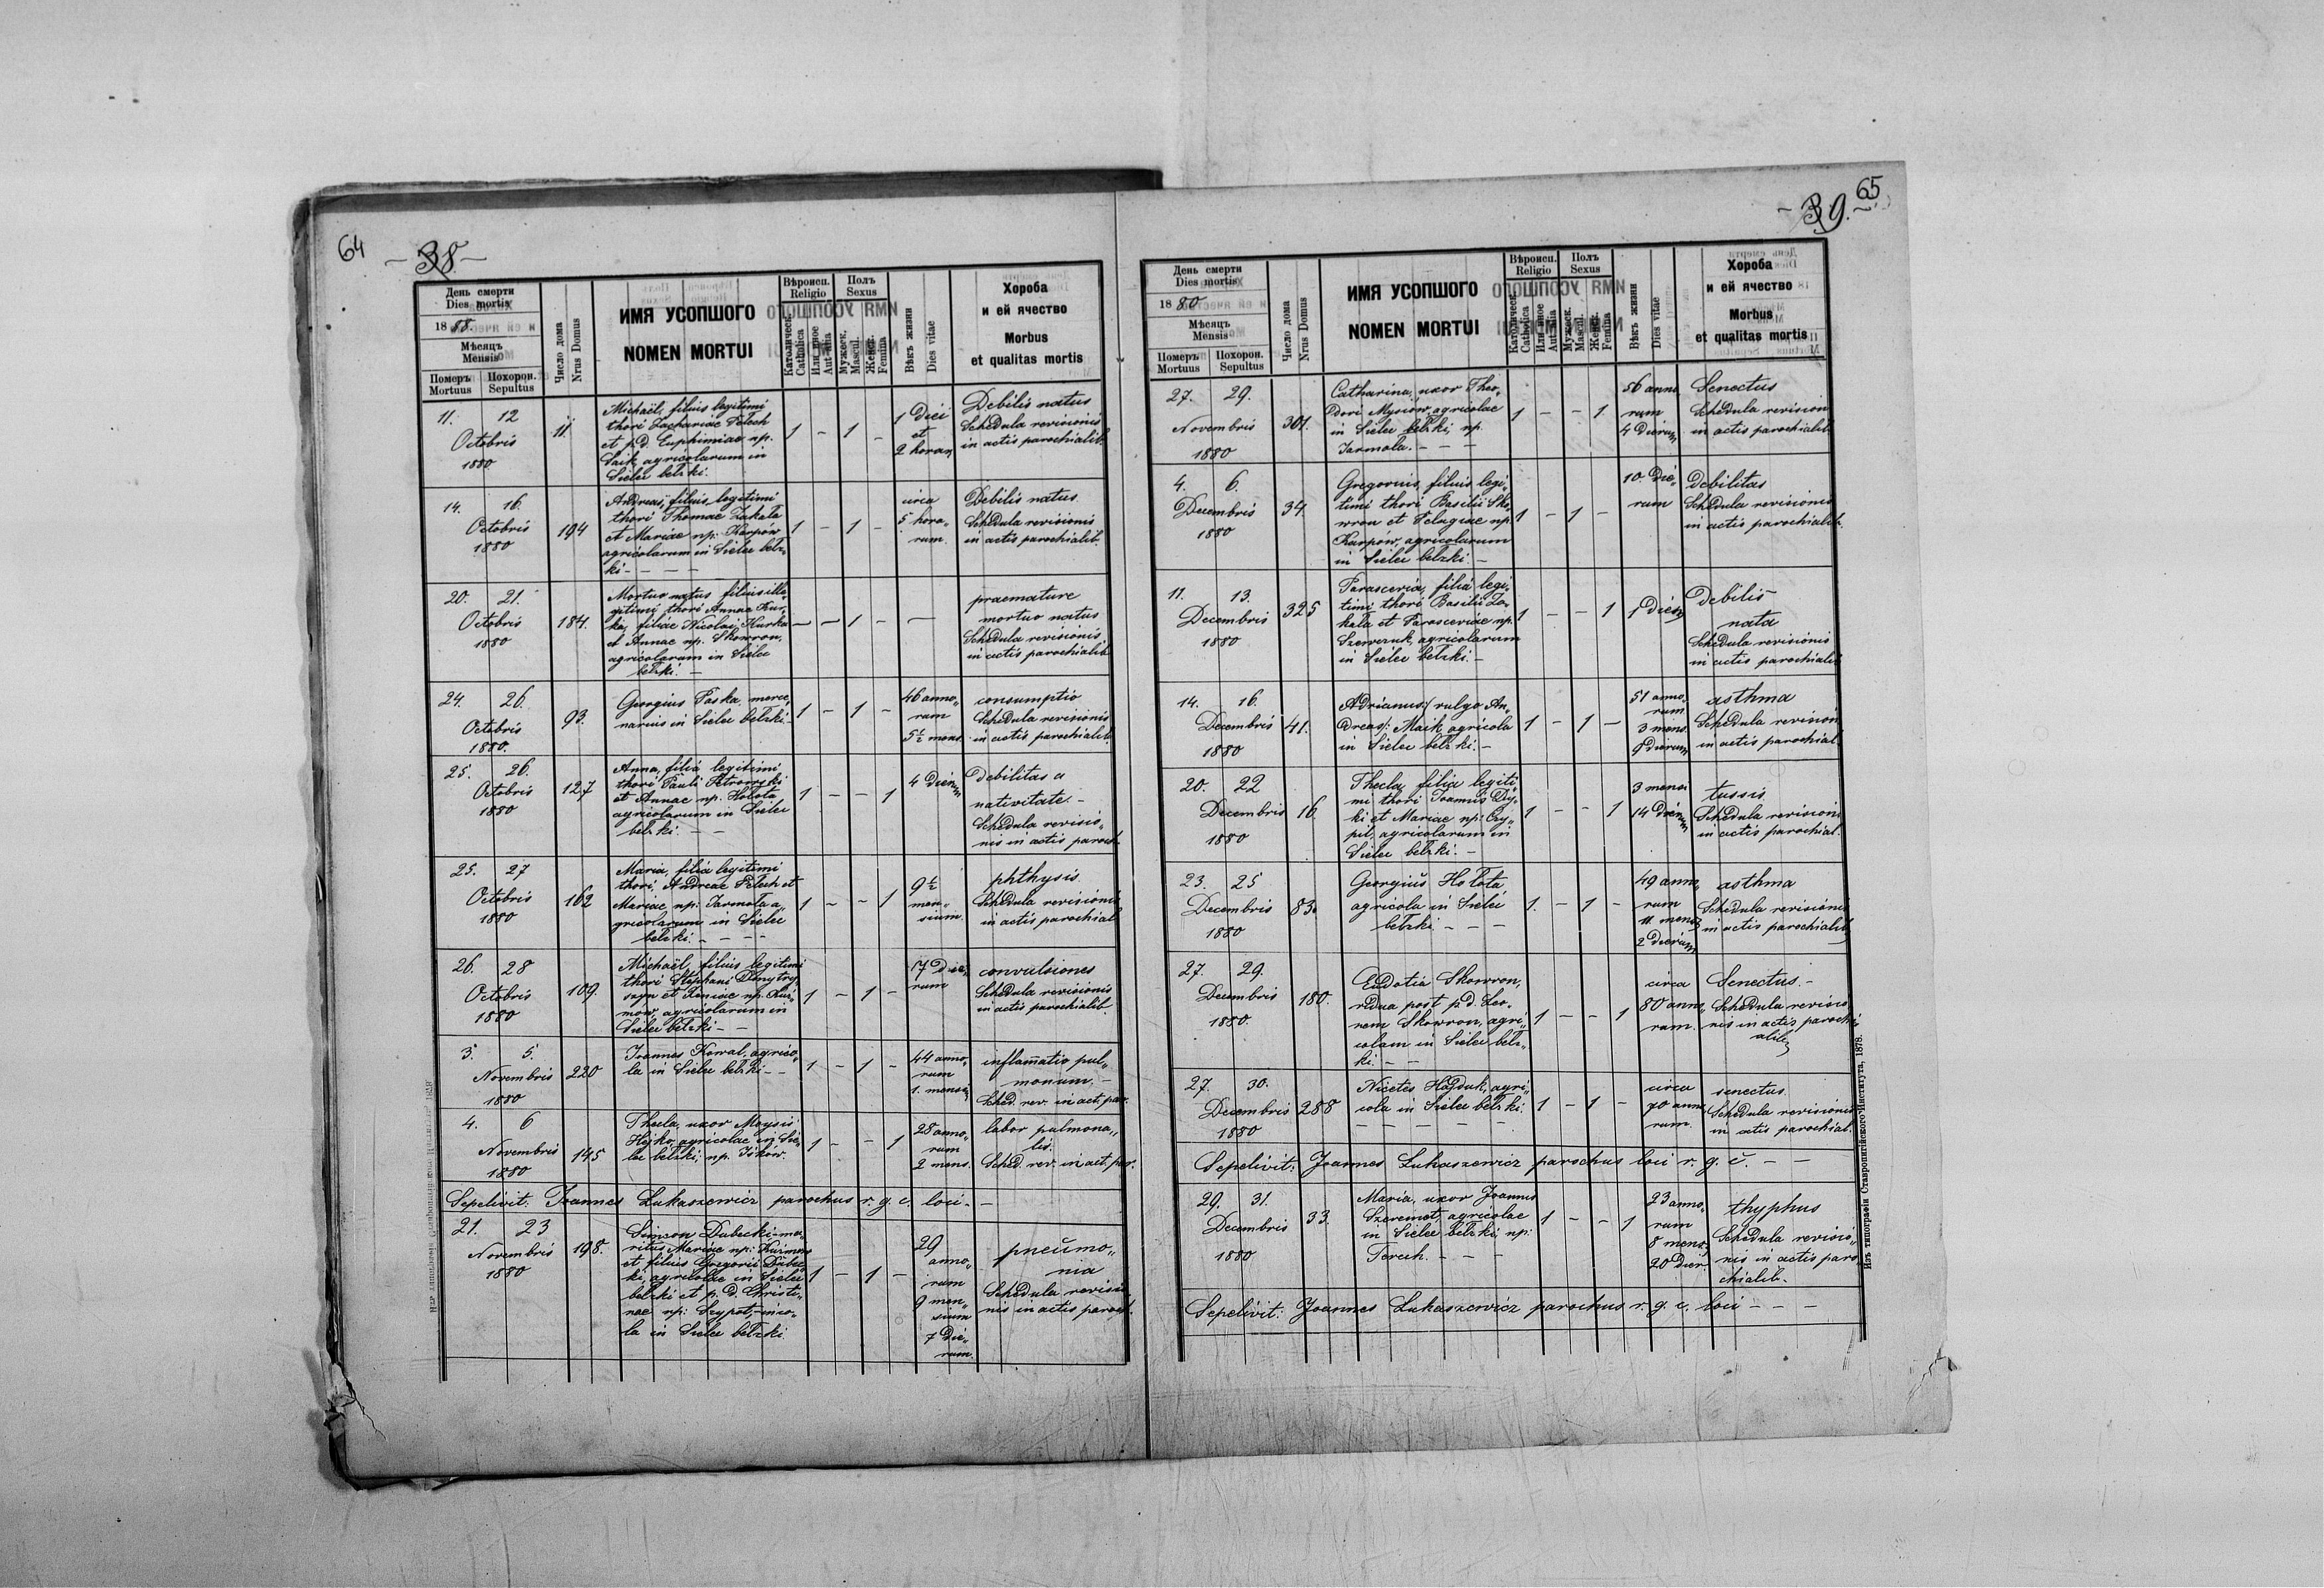 64
- 38 -
День смерти
Dies mortis
18 88.
Мѣсяцъ
Mensis
Померъ Mortuus
Похорон. Sepultus
Число дома
Nrus Domus
ИМЯ УСОПШОГО
NOMEN MORTUI
Вѣроисп.
Religio
Католическ.
Catholica
Или иное
Aut alia
Полъ
Sexus
Мужеск.
Mascul.
Женск.
Femina
Вѣкъ жизни
Dies vitae
Хороба
и ей ячество
Morbus
et qualitas mortis
11. 12
Octobris
1880
11.
Michaël, filius legitimi
thori Zachariae Pelech
et p.d. Euphimiae np.
Saik, agricolarum in
Sielec bełzki.
1 - 1 -
1 diei
et
2 horar.
Debilis natus
Schedula revisionis
in actis parochialib.
14. 16.
Octobris
1880
194
Andreas, filius legitimi
thori Thomae Zakala
et Mariae np: Karpów
agricolarum in Sielec bełz„
ki - - - -
1 - 1 -
circa
5 hora„
rum.
Debilis natus
Schedula revisionis
in actis parochialib.
20. 21.
Octobris
1880
184.
Mortuo natus filius ille„
gitimi thori Annae Kur„
ka, filiae Nicolai Kurka
et Annae np. Skowron,
agricolarum in Sielec
bełzki. -
- - 1 - -
praemature
mortuo natus
Schedula revisionis
in actis parochialib.
24. 26.
Octobris
1880.
93.
Georgius Paska, merce„
narius in Sielec bełzki.
1 - 1 -
46 anno„
rum
5½ mens.
consumptio
Schedula revisionis
in actis parochialib.
25. 26.
Octobris
1880
127
Anna, filia legitimi
thori Pauli Petronycki
et Annae np. Hołota
agricolarum in Sielec
bełzki. - -
1 - - 1
4 dierum
debilitas a
nativitate. -
Schedula revisio„
nis in actis paroch.
25. 27
Octobris
1880
162
Maria, filia legitimi
thori, Andreae Pelech et
Mariae np: Jarmola a„
gricolarum in Sielec
bełzki. - - -
1 - - 1
9½
men„
sium.
phthysis.
Schedula revisionis
in actis parochial.
26. 28
Octobris
1880
109.
Michaël, filius legitimi
thori Stephani Dmytry„
szyn et Xeniae np. Kuź„
mow, agricolarum in
Sielec bełzki - -
1 - 1 -
17 die„
rum
convulsiones
Schedula revisionis
in actis parochialib.
3. 5.
Novembris
1880
220
Joannes Kowal, agrico„
la in Sielec bełzki - -
1 - 1 -
44 anno„
rum
1. mensis
inflam̄atio pul„
monum. -
Sched. rev. in act. par.
4. 6
Novembris
1880
145
Thecla, uxor Moysis
Hejko, agricolae in Sie„
lec bełzki, np. Iśków.
1 - - 1
28 anno„
rum
2 mens.
labor pulmona„
lis.
Sched. rev. in act. par.
Sepelivit: Joannes Łukaszewicz parochus r. g. c. loci. -
21. 23
Novembris
1880
198.
Simson Dubecki - ma„
ritus Mariae np: Kuźmow
et filius Gregorii Dubec„
ki, agricolae in Sielec
bełzki et p. d. Christi„
nae np: Szypot, inco„
la in Sielec bełzki
1 - 1 -
29
anno„
rum
9 men„
sium
7 die„
rum.
pneŭmo„
nia
Schedula revisio„
nis in actis paroch.
- 39. -
65
День смерти
Dies mortis
18 80.
Мѣсяцъ
Mensis
Померъ Mortuus
Похорон. Sepultus
Число дома
Nrus Domus
ИМЯ УСОПШОГО
NOMEN MORTUI
Вѣроисп.
Religio
Католическ.
Catholica
Или иное
Aut alia
Полъ
Sexus
Мужеск.
Mascul.
Женск.
Femina
Вѣкъ жизни
Dies vitae
Хороба
и ей ячество
Morbus
et qualitas mortis
27. 29.
Novembris
1880
301.
Catharina, uxor Theo„
dori Mysiow, agricolae
in Sielec bełzki, np.
Jarmola. - - -
1 - - 1
56 anno
rum
4 dierum
Senectus
Schedula revision
in actis parochialib.
4. 6.
Decembris
1880
34.
Gregorius, filius legi„
timi thori Basilii Sko„
wron et Pelagiae np
Karpów, agricolarum
in Sielec bełzki. -
1 - 1 -
10. die„
rum
debilitas
Schedula revisionis
in actis parochialib.
11. 13.
Decembris
1880
325
Parascevia, filia legi„
timi thori Basilii Za„
kala et Parasceviae np.
Szewczuk, agricolarum
in Sielec bełzki. -
1 - - 1
1 diei
debilis
nata
Schedula revisionis
in actis parochialib
14. 16.
Decembris
1880
41.
Adrianus /: vulgo An„
dreas:/ Maik agricola
in Sielec bełzki. -
1 - 1 -
51 anno„
rum
3 mens.
9 dierum
asthma
Schedula revision
in actis parochial.
20. 22
Decembris
1880
16.
Thecla, filia legiti„
mi thori Joannis Dy„
ki et Mariae np: Czy„
pil, agricolarum in
Sielec bełzki. -
1 - - 1
3 mens.
14 dierum
tussis
Schedula revisioni
in actis parochial.
23. 25
Decembris
1880
83.
Georgiŭs Hołota
agricola in Sielec
bełzki. - - -
1. - 1 -
49 anno„
rum
11 mens.
2 dierum
asthma
Schedula revisionis
in actis parochialib
27. 29.
Decembris
1880.
180.
Eudotia Skowron,
vidua post p.d. Leo„
nem Skowron, agri„
colam in Sielec bełz„
ki. - -
1 - - 1
circa
80 anno„
rum.
Senectus. -
Schedula revisio„
nis in actis parochi
alib.
27. 30.
Decembris
1880
288
Nicetes Hajduk, agri„
cola in Sielec bełzki.
- - - - -
1 - 1 -
circa
70 anno
rum.
senectus.
Schedula revisionis
in actis parochial.
Sepelivit: Joannes Łukaszewicz parochus loci r. g. c. - -
29. 31.
Decembris
1880
33.
Maria, uxor Joannis
Szeremet, agricolae
in Sielec bełzki, np:
Terech. - - -
1 - - 1
23 anno„
rum
8 mens.
20 dier.
thyphus
Schedula revisio„
nis in actis paro„
chialib.
Sepelivit: Joannes Łukaszewicz parochus r. g. c. loci - - -
Изъ типографіи Ставропигійского Института, 1878.